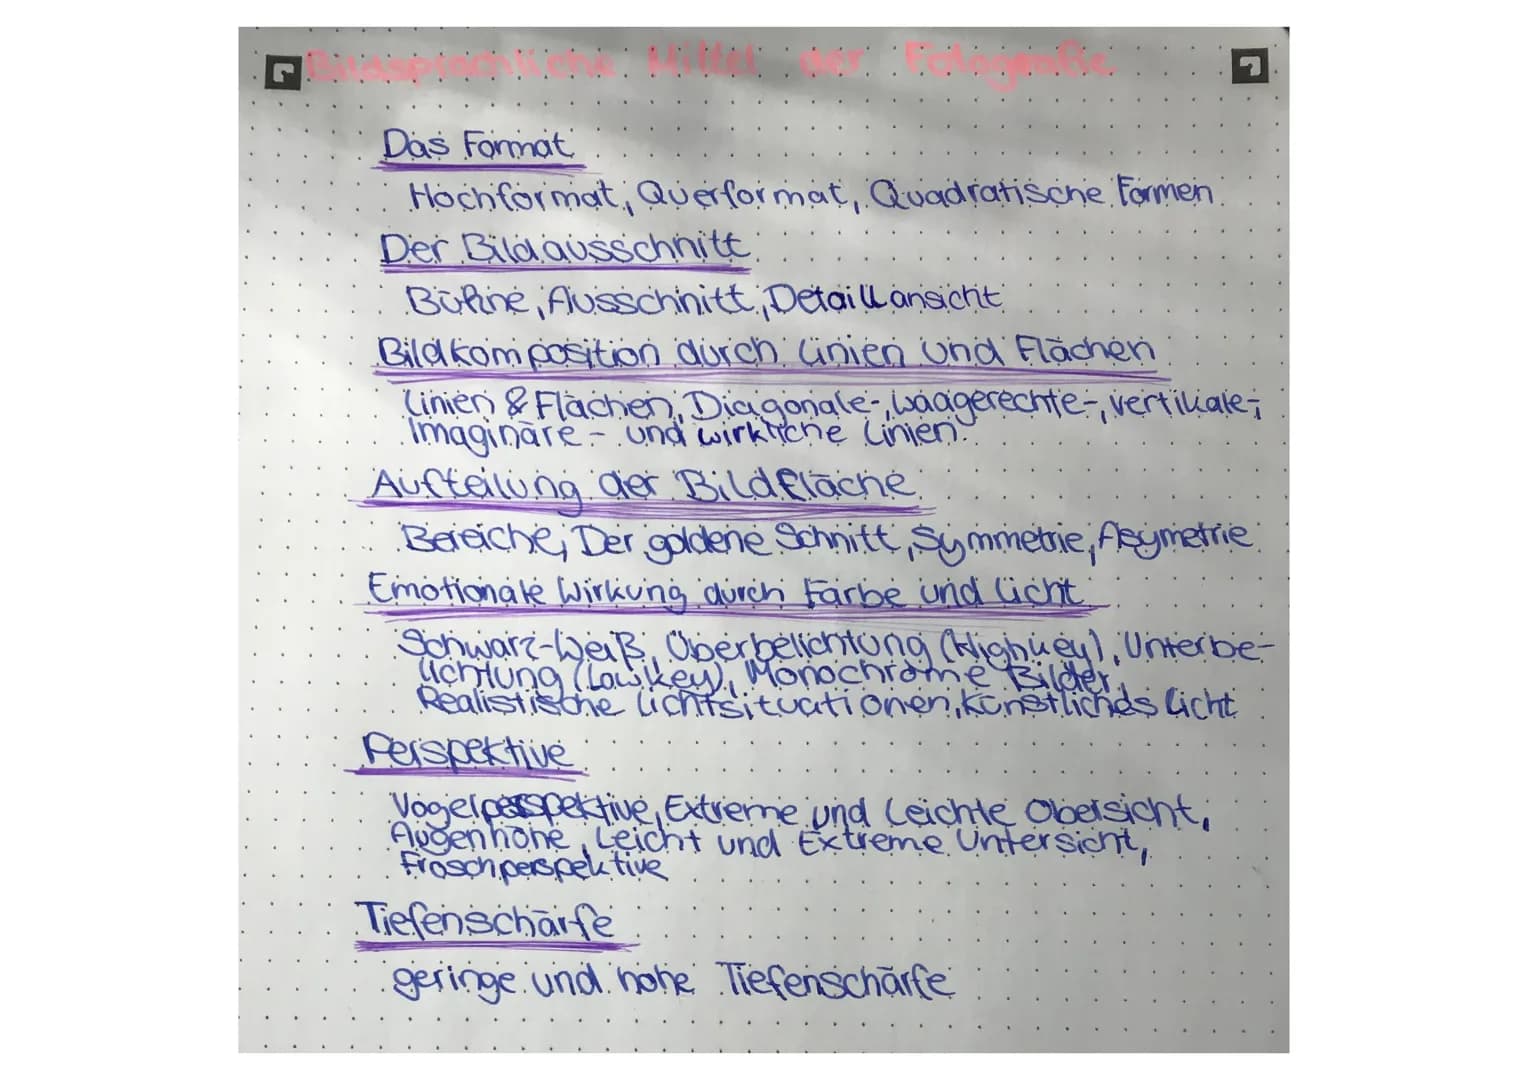 Bildsprachliche Mittel der Fotografie
Das Format
Hochformat, Querformat, Quadratische Formen
Der Bildausschnitt
Bühne, Ausschnitt, Detaillansicht
Bildkomposition durch Linien und Flächen
Linien & Flächen, Diagonale-, waagerechte-, vertikale-,
Imaginäre- und wirkliche Linien.
Aufteilung der Bildfläche
Bereiche, Der goldene Schnitt, Symmetrie, Asymetrie
Emotionale Wirkung durch Farbe und Licht
Schwarz-Weiß, Überbelichtung (Highkey), Unterbe-
lichtung (Lowkey), Monochrome Bilder,
Realistische Lichtsituationen, künstliches Licht
Perspektive
Vogelperspektive, Extreme und Leichte Obersicht,
Augenhöhe, Leicht und Extreme Untersicht,
Froschperspektive
Tiefenschärfe
geringe und hohe Tiefenschärfe